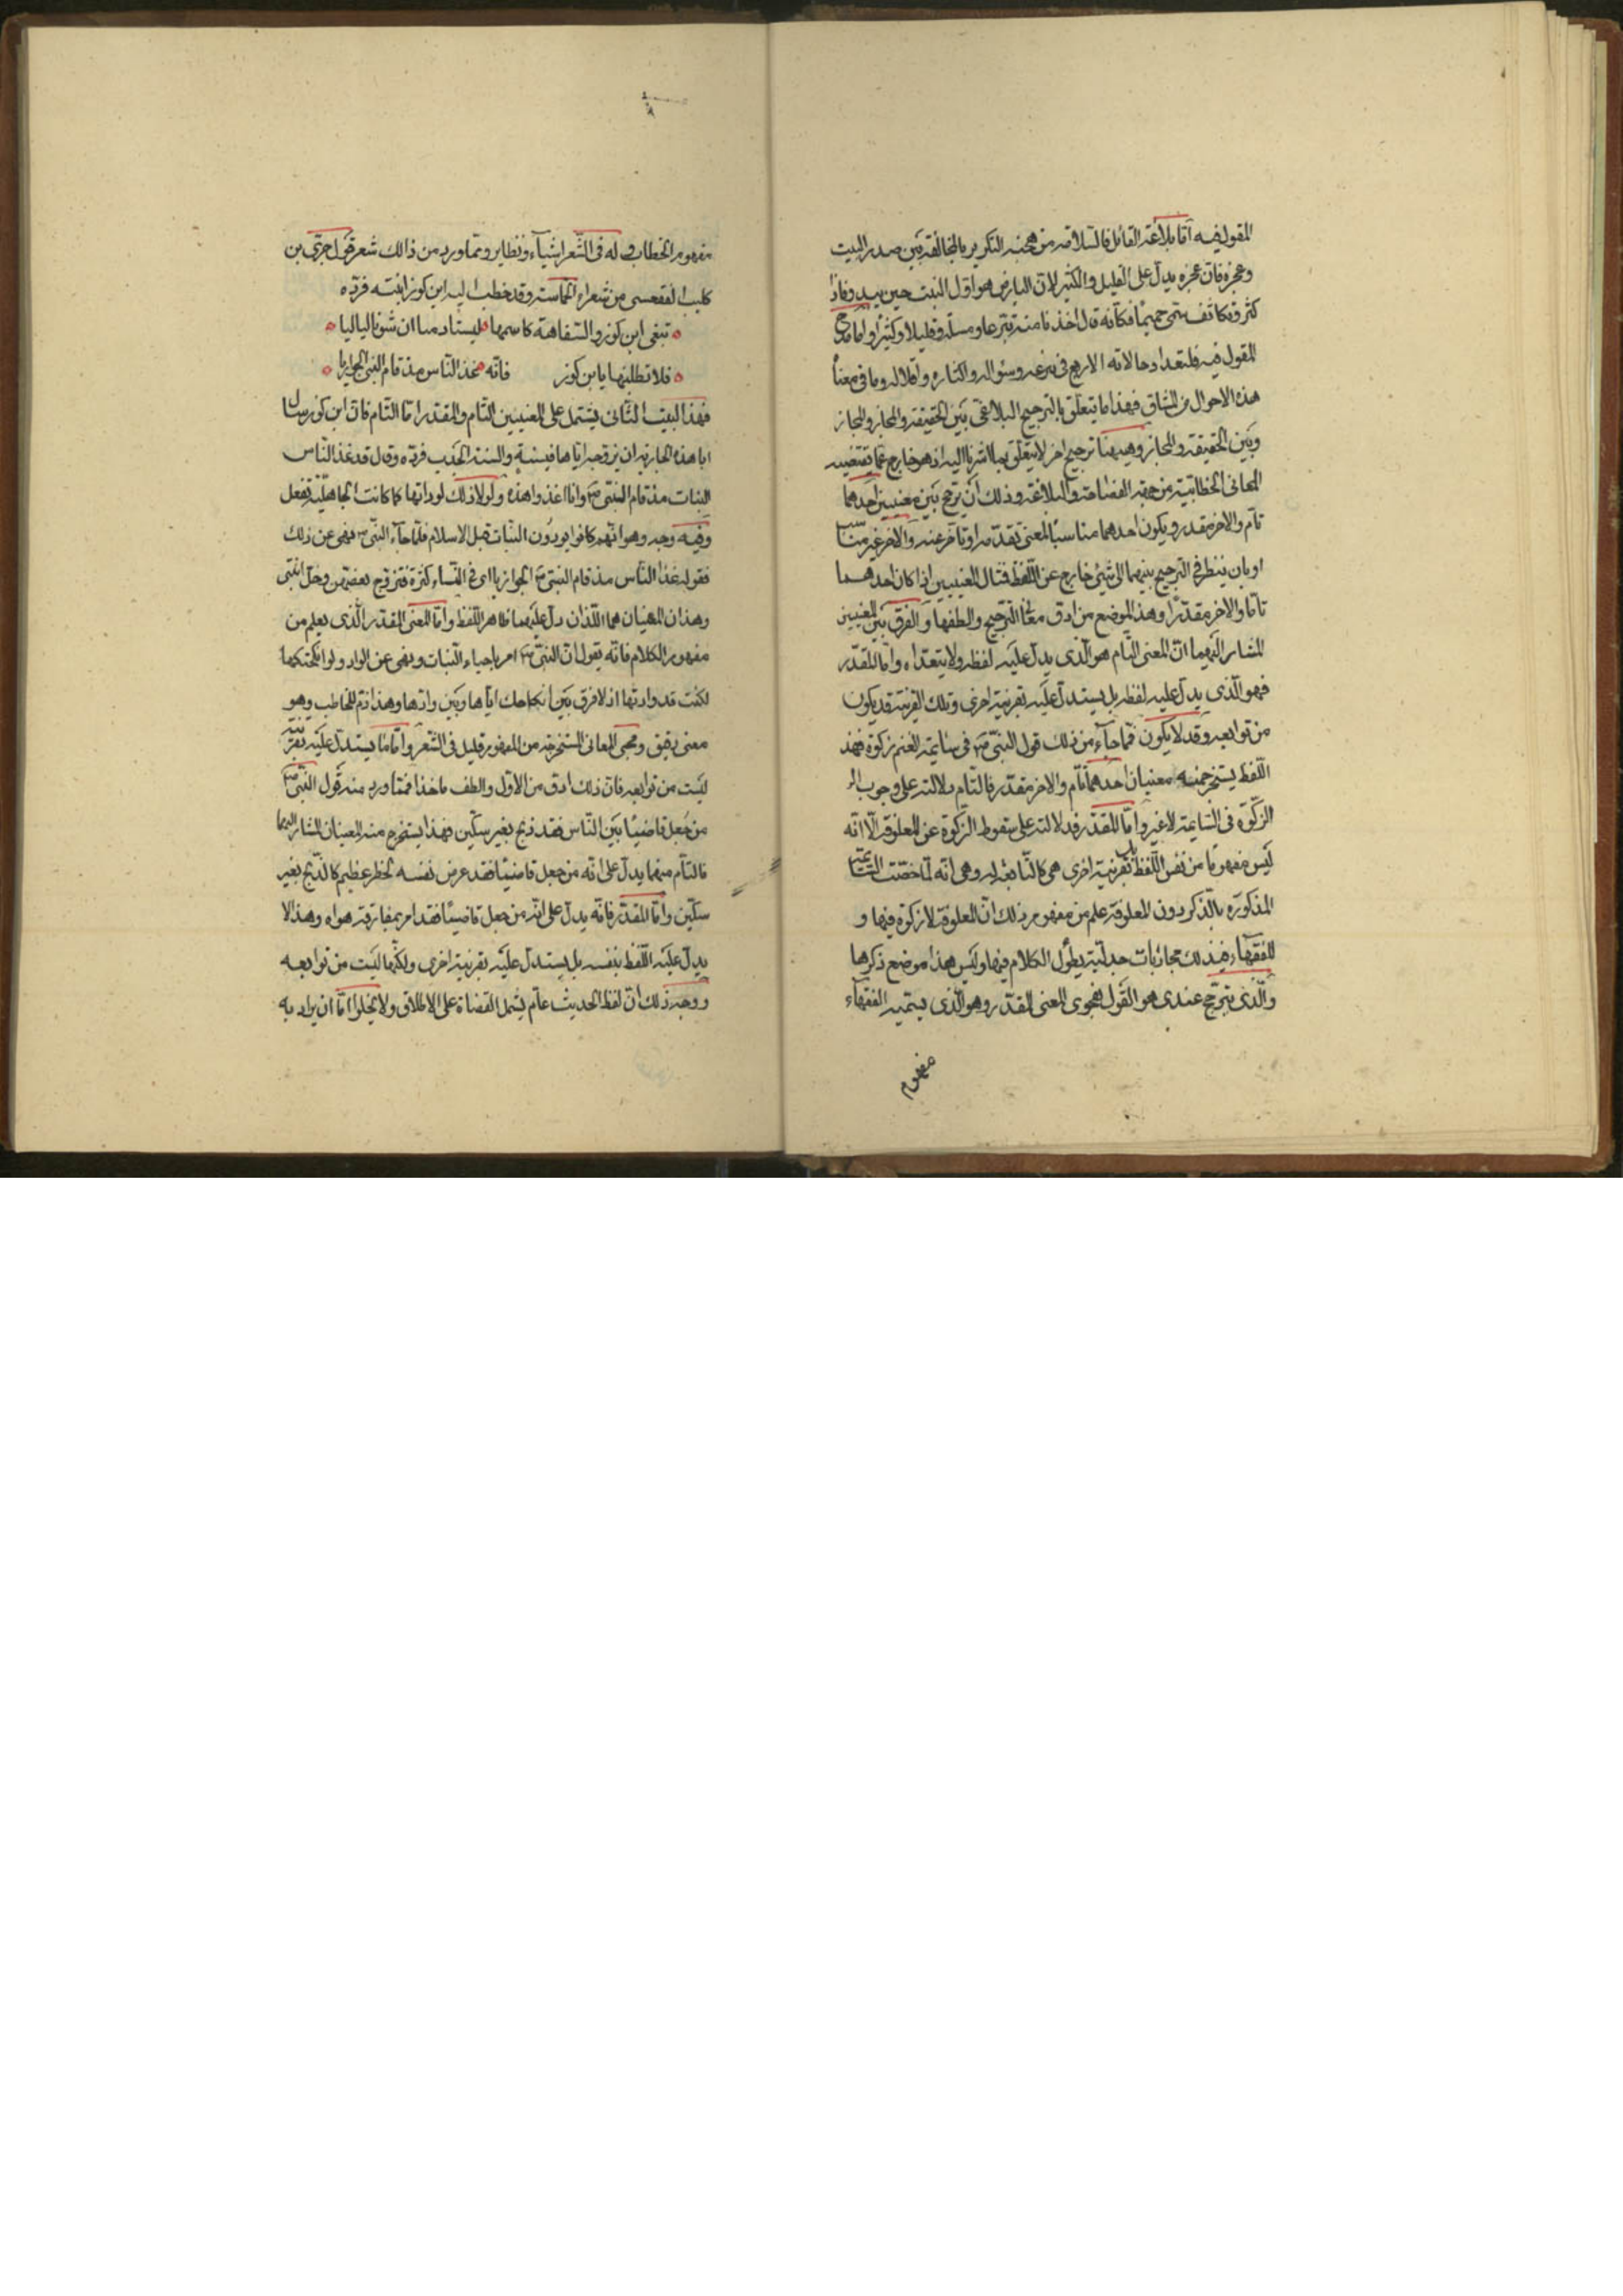 المقول فيه اما بلاغة القائل فالسلامة من هجنة التكرير بالمخالفة بين صدر البيت
وعجزه فان عجزه يدل على القليل والكثير لان البارض هو اول النبت حين يبدو فاذا
كثر وتكاثف سمى جميما فكانه قال اخذنا منه تبرعا ومسئلة وقليلا وكثيرا واما مدح
المقول فيه فلتعداد حالاته الاربع فى تبرعه وسؤاله واكثاره واقلاله وما فى معناه
هذه الاحوال من المشاق فهذا ما يتعلق بالترجيح البلاغى بين الحقيقة والمجاز والمجاز
وبين الحقيقة والمجاز وهيهنا ترجيح اخر لا يتعلق بما اشرنا اليه اذ هو خارج عما تقتضيه
المعانى الخطابية من جهة الفصاحة والبلاغة وذلك ان يرجح بين معنيين احدهما
تام والاخر مقدر ويكون احدهما مناسبا لمعنى تقدمه او تاخر عنه والاخر غير مناسب
او بان ينظر فى الترجيح بينهما الى شئ خارج عن اللفظ فمثال المعنيين اذا كان احدهما
تاما والاخر مقدرا وهذا الموضع من ادق الترجيح والطفها والفرق بين المعنيين
المشار اليهما ان المعنى التام هو الذى يدل عليه لفظه ولا يتعداه واما المقدر
فهو الذى يدل عليه لفظه بل يستدل عليه بقرينة اخرى وتلك القرينة قد يكون
من توابعه وقد لا يكون فمما جآء من ذلك قول النبى ص فى سائمة الغنم زكوة فهذ
اللفظ يستخرج منه معنيان احدهما تام والاخر مقدر فالتام دلالته على وجوب الـ
الزكوة فى السائمة لا غير واما المقدر فدلالته على سقوط الزكوة عن المعلوفة الا انه
ليس مفهوما من نفس اللفظ بل بقرينة اخرى هى كالتابعة له وهى انه لما خصت السائمة
المذكورة بالذكر دون المعلوفة علم من مفهوم ذلك ان المعلوفة لا زكوة فيها و
للفقهآء فى ذلك مجاذبات جدلية يطول الكلام فيها وليس هذا موضع ذكرها
والذى يترجح عندى هو القول بفحوى المعنى المقدر وهو الذى يسميه الفقهآء
مفهوم
مفهوم الخطاب وله فى الشعر اشيآء ونظاير ومما ورد من ذالك شعر قول جزى بن
كليب الفقعسى من شعراء الحماسة وقد خطب اليه ابن كوز ابنته فرده
تبغى ابن كوز والسفاهة كاسمها ليستاد منا ان شتونا لياليا
فلا تطلبنها يا بن كوز فانه غذا الناس مذ قام النبى الجواريا
فهذا البيت الثانى يشتمل على المعنيين التام والمقدر اما التام فان ابن كوز سال
ابا هذه الجارية ان يزوجه اياها فى سنة والسنة الجدب فرده وقال قد غذا الناس
البنات مذ قام النبى ص وانا اغذوا هذه ولولا ذلك لوادتها كما كانت الجاهلية تفعل
وفيه وجه وهو انهم كانوا يودون البنات قبل الاسلام فلما جآء النبى ص نهى عن ذلك
فقوله غذا الناس مذ قام النبى ص الجواريا اى فى النساء كثرة فتزوج بعضهن وخل ابنتى
وهذان المعنيان هما اللذان دل عليهما ظاهر اللفظ واما المعنى المقدر الذى يعلم من
مفهوم الكلام فانه يقول ان النبى ص امر باحياء البنات ونهى عن الواد ولو انكحتكها
لكنت قد وادتها اذ لا فرق بين انكاحك اياها وبين وادها وهذا ذم للمخاطب وهو
معنى دقيق ومجئ المعانى المستخرجة من المفهوم قليل فى الشعر واما ما يستدل عليه بقرينة
ليست من توابعه فان ذلك ادق من الاول والطف ماخذا فمما ورد منه قول النبى ص
من جعل قاضيا بين الناس فقد ذبح بغير سكين فهذا يستخرج منه المعنيان المشار اليهما
فالتام منهما يدل على انه من جعل قاضيا فقد عرض نفسه لخطر عظيم كالذبح بغير
سكين واما المقدر فانه يدل على انه من جعل قاضيا فقد امر بمفارقة هواه وهذا لا
يدل عليه اللفظ بنفسه بل يستدل عليه بقرينة اخرى ولكنها ليست من توابعه
ووجه ذلك ان لفظ الحديث عام يشمل القضاة على الاطلاق ولا يخلوا اما ان يراد به